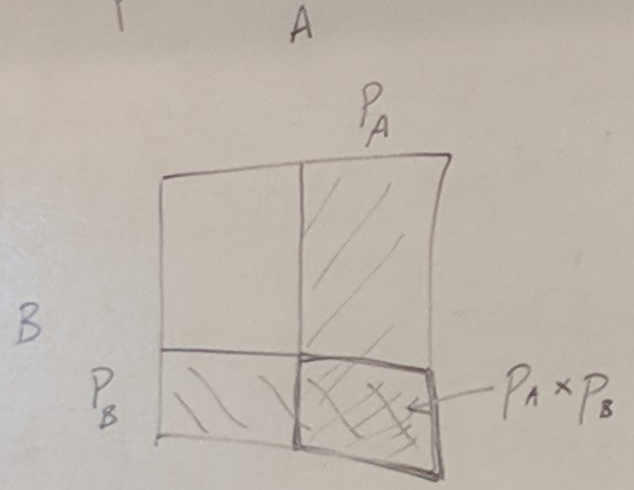 A
P_A
B
P_B
P_A × P_B